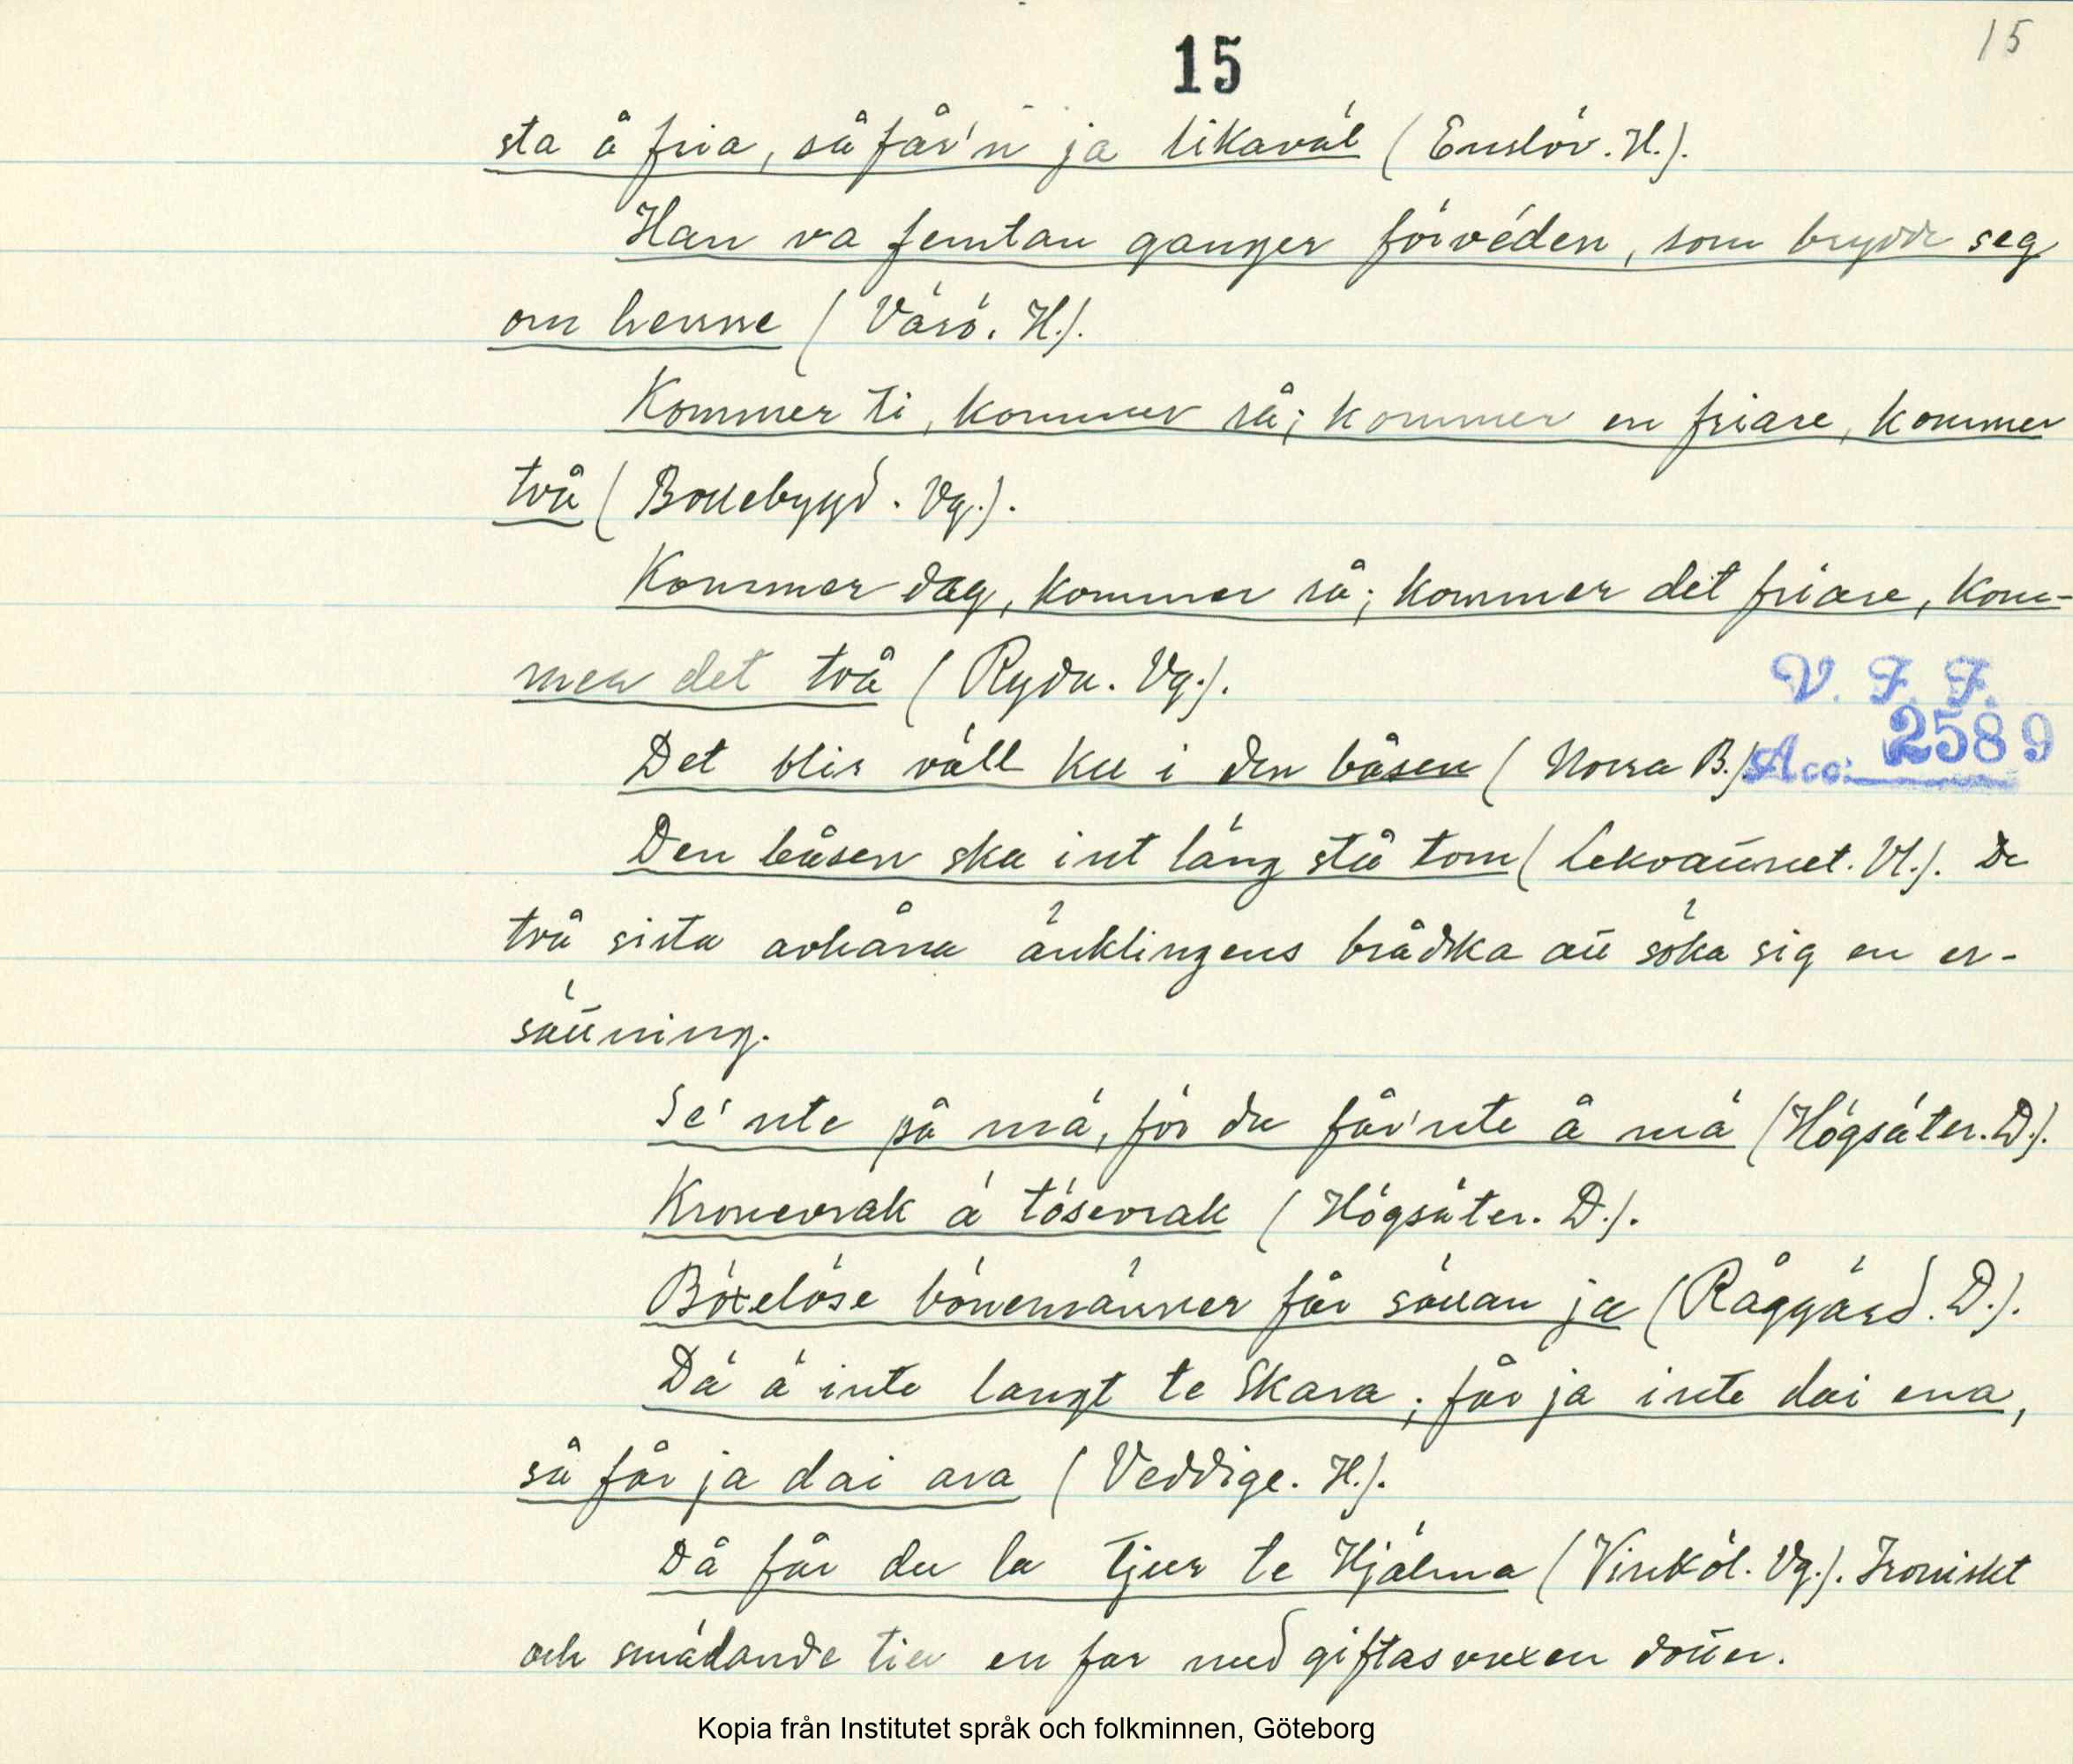 15
15
sta å fria, så får'n ja likaväl (Enslöv. H.).
Han va femtan ganger förveden, som brydde seg
om henne (Värö. H.).
Kommer ti, kommer rå; kommer en friare, kommer
två (Bollebygd. Vg.).
Kommer dag, kommer rå; kommer det friare, kom-
mer det två (Ryda. Vg.).
V. F. F.
Det blir väll ku i den båsen (Norra B.)
Acc: 2589
Den båsen ska int läng stå tom (Lekvattnet. Vl.). De
två sista avhåna änklingens brådska att söka sig en er-
sättning.
Se' nte på mä, för du får'nte å mä (Högsäter. D.).
Kronevrak ä tösevrak (Högsäter. D.).
Böxelöse bönemänner får sällan ja (Råggärd. D.).
Dä ä inte langt te Skara; får ja inte dai ena,
så får ja dai ara (Veddige. H.).
Då får du la tjur te Hjälma (Vinköl. Vg.). Ironiskt
och smädande till en far med giftasvuxen dotter.
Kopia från Institutet språk och folkminnen, Göteborg